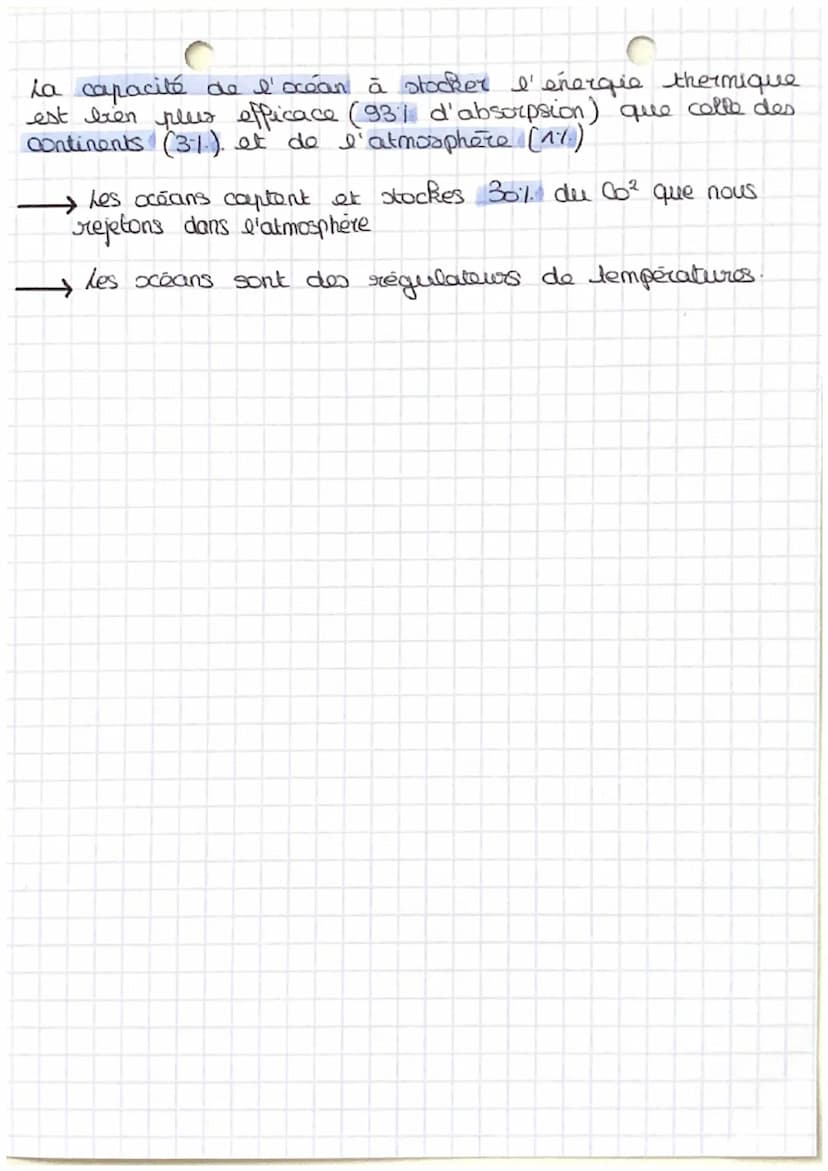 La capacité de l'océan à stocker l'énergie thermique
est bien plus efficace (93% d'absorpsion) que celle des
continents (3%). et de l'atmosphère (1%)
→ Les océans captent et stockes 30% du CO² que nous
rejetons dans l'atmosphère
→ Les océans sont des régulateurs de températures.